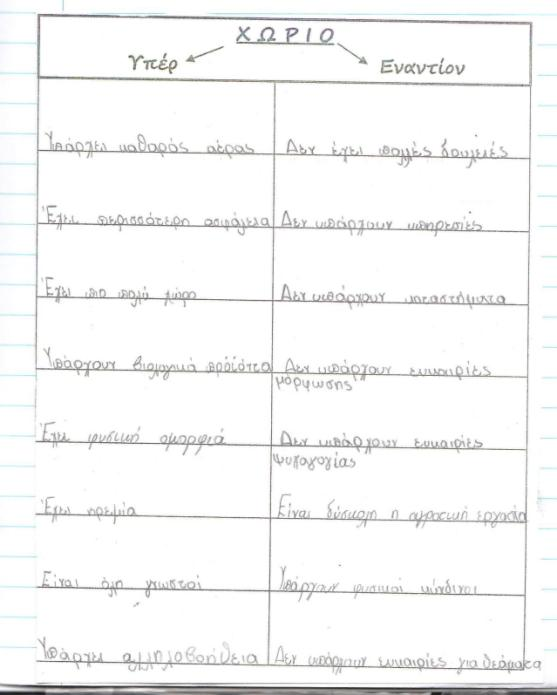 ΧΩΡΙΟ
Υπέρ Εναντίον
Υπάρχει καθαρός αέρας Δεν έχει πολλές δουλειές
Έχει περισσότερη ασφάλεια Δεν υπάρχουν υπηρεσίες
Έχει πιο πολύ χώρο Δεν υπάρχουν καταστήματα
Υπάρχουν βιολογικά προϊότα Δεν υπάρχουν ευκαιρίες
μόρφωσης
Έχει φυσική ομορφιά Δεν υπάρχουν ευκαιρίες
ψυχαγογίας
Έχει ηρεμία Είναι δύσκολη η αγροτική εργασία
Είναι όλη γνωστοί Υπάρχουν φυσικοί κίνδυνοι
Υπάρχει αλληλοβοήθεια Δεν υπάρχουν ευκαιρίες για θεάματα